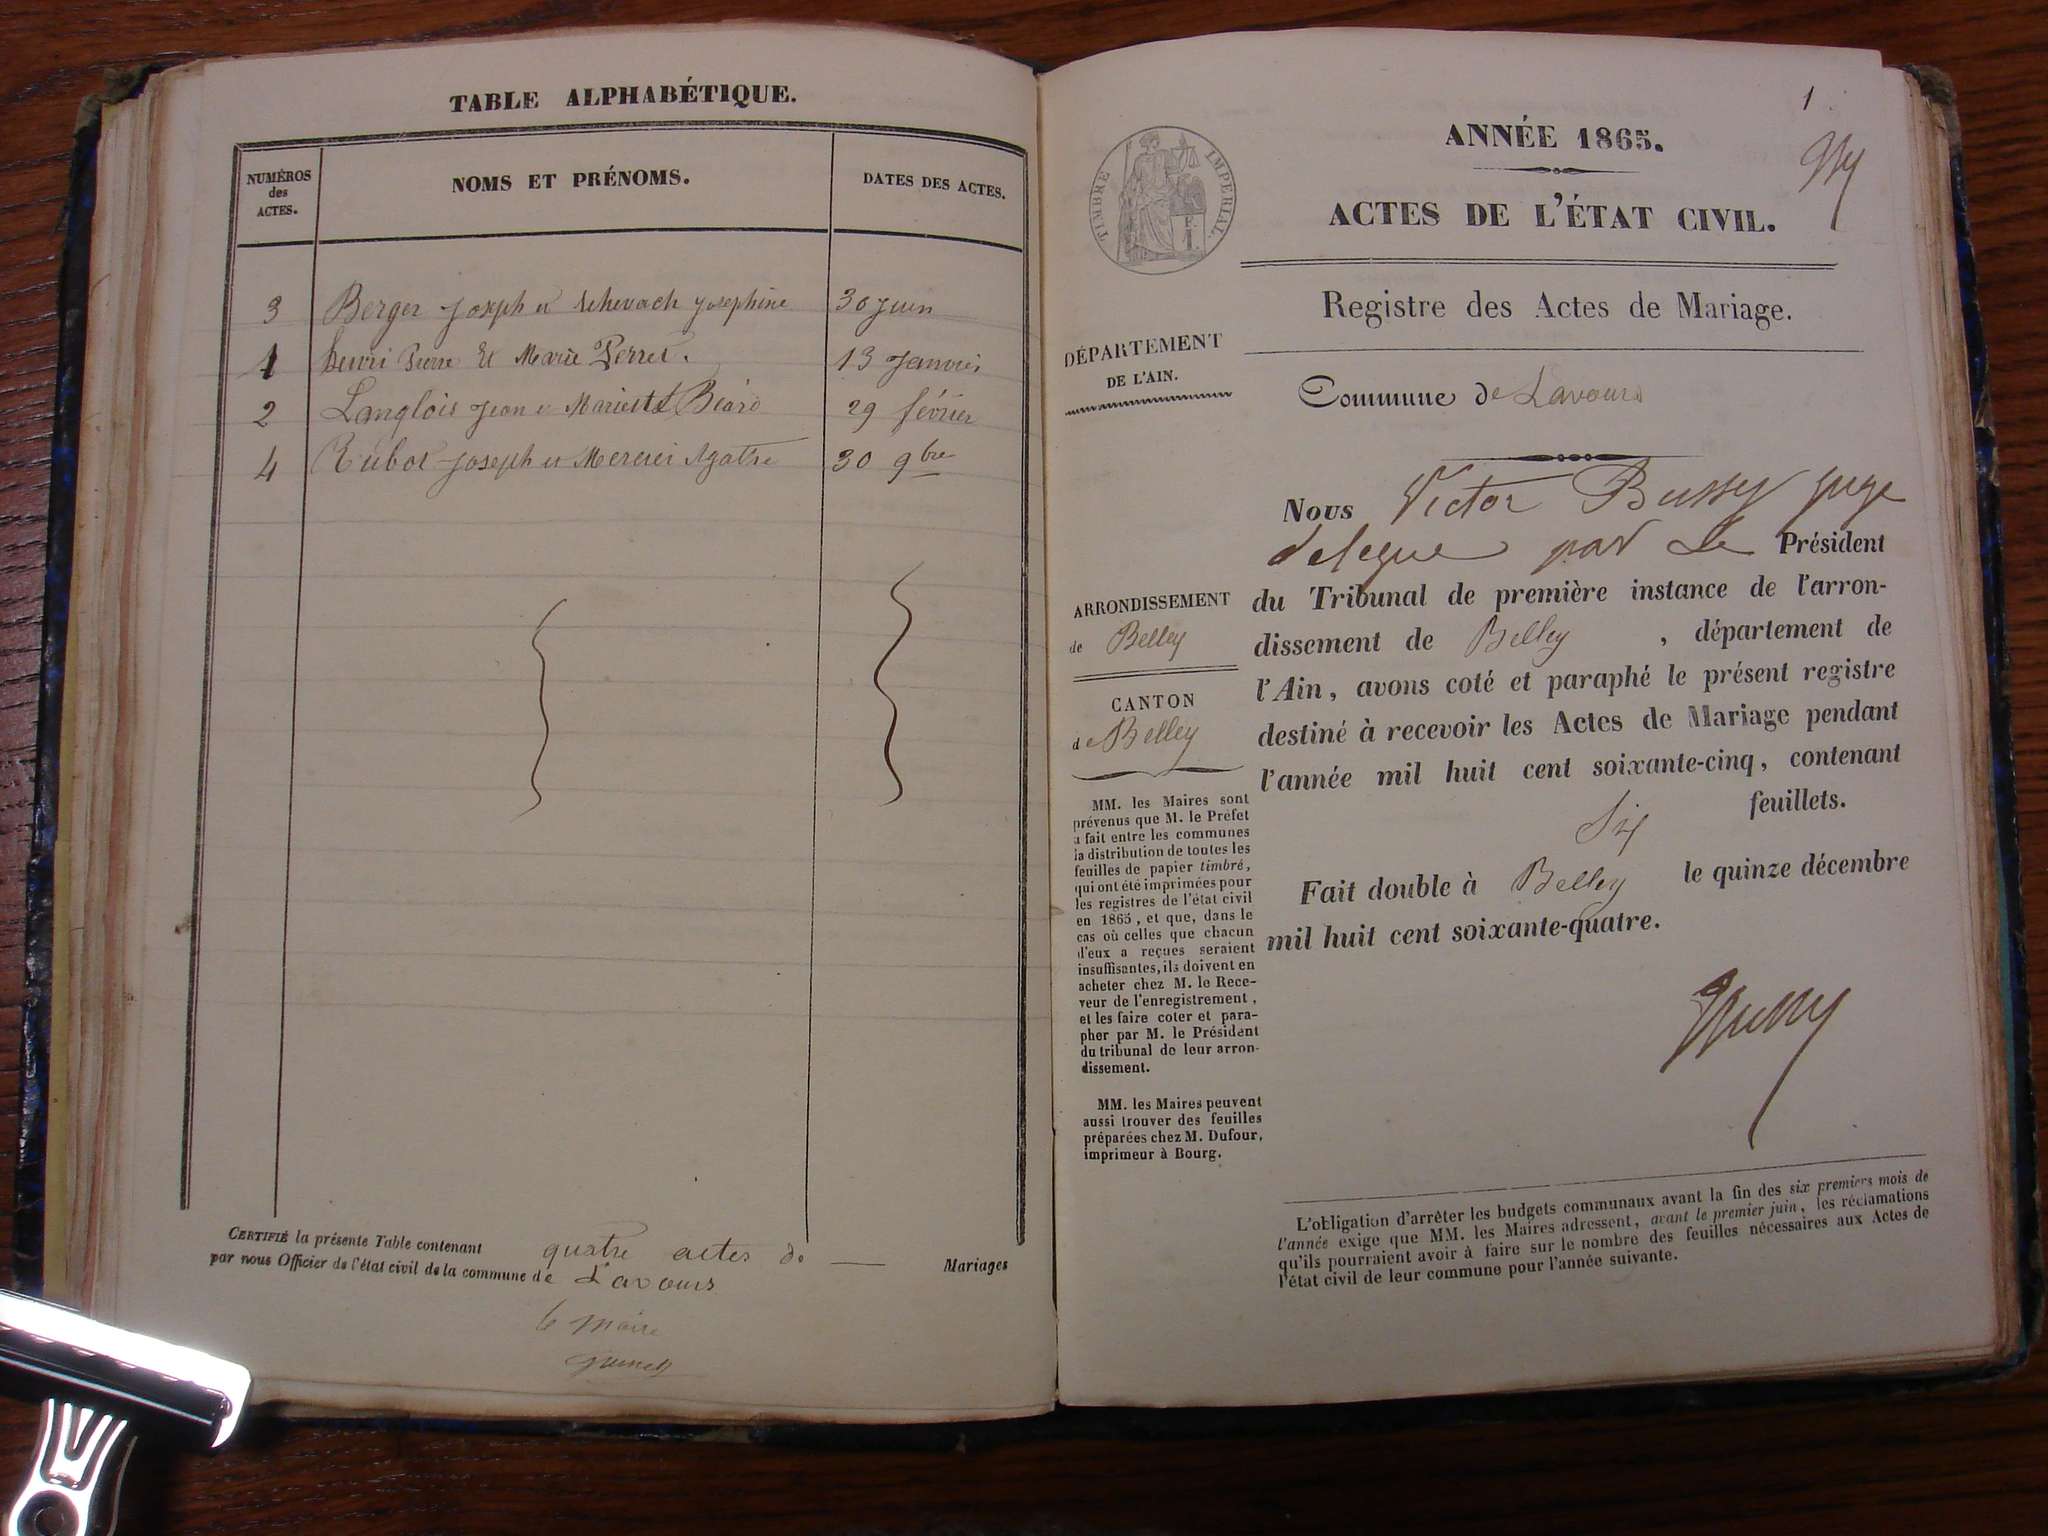 TABLE ALPHABÉTIQUE.
NUMÉROS des ACTES.
NOMS ET PRÉNOMS.
DATES DES ACTES.
3 Berger Joseph et Josephine 30 Juin
1 henri Pierre Et Marie Perret. 13 Janvier
2 Langlois Jean et Biard 29 février
4 Joseph et Mercier Agathe 30 9bre
CERTIFIÉ la présente Table contenant quatre actes de Mariages
par nous Officier de l'état civil de la commune de Lavours
le Maire
1
ANNÉE 1865.
ACTES DE L'ÉTAT CIVIL.
TIMBRE IMPÉRIAL.
Registre des Actes de Mariage.
DÉPARTEMENT
DE L'AIN.
Commune de Lavours
ARRONDISSEMENT
de Belley
CANTON
de Belley
MM. les Maires sont
prévenus que M. le Préfet
a fait entre les communes
la distribution de toutes les
feuilles de papier timbré,
qui ont été imprimées pour
les registres de l'état civil
en 1865, et que, dans le
cas où celles que chacun
d'eux a reçues seraient
insuffisantes, ils doivent en
acheter chez M. le Rece-
veur de l'enregistrement,
et les faire coter et para-
pher par M. le Président
du tribunal de leur arron-
dissement.
MM. les Maires peuvent
aussi trouver des feuilles
préparées chez M. Dufour,
imprimeur à Bourg.
Nous Victor Bussy juge
delegue par Le Président
du Tribunal de première instance de l'arron-
dissement de Belley, département de
l'Ain, avons coté et paraphé le présent registre
destiné à recevoir les Actes de Mariage pendant
l'année mil huit cent soixante-cinq, contenant
Six feuillets.
Fait double à Belley le quinze décembre
mil huit cent soixante-quatre.
Bussy
L'obligation d'arrêter les budgets communaux avant la fin des six premiers mois de
l'année exige que MM. les Maires adressent, avant le premier juin, les réclamations
qu'ils pourraient avoir à faire sur le nombre des feuilles nécessaires aux Actes de
l'état civil de leur commune pour l'année suivante.